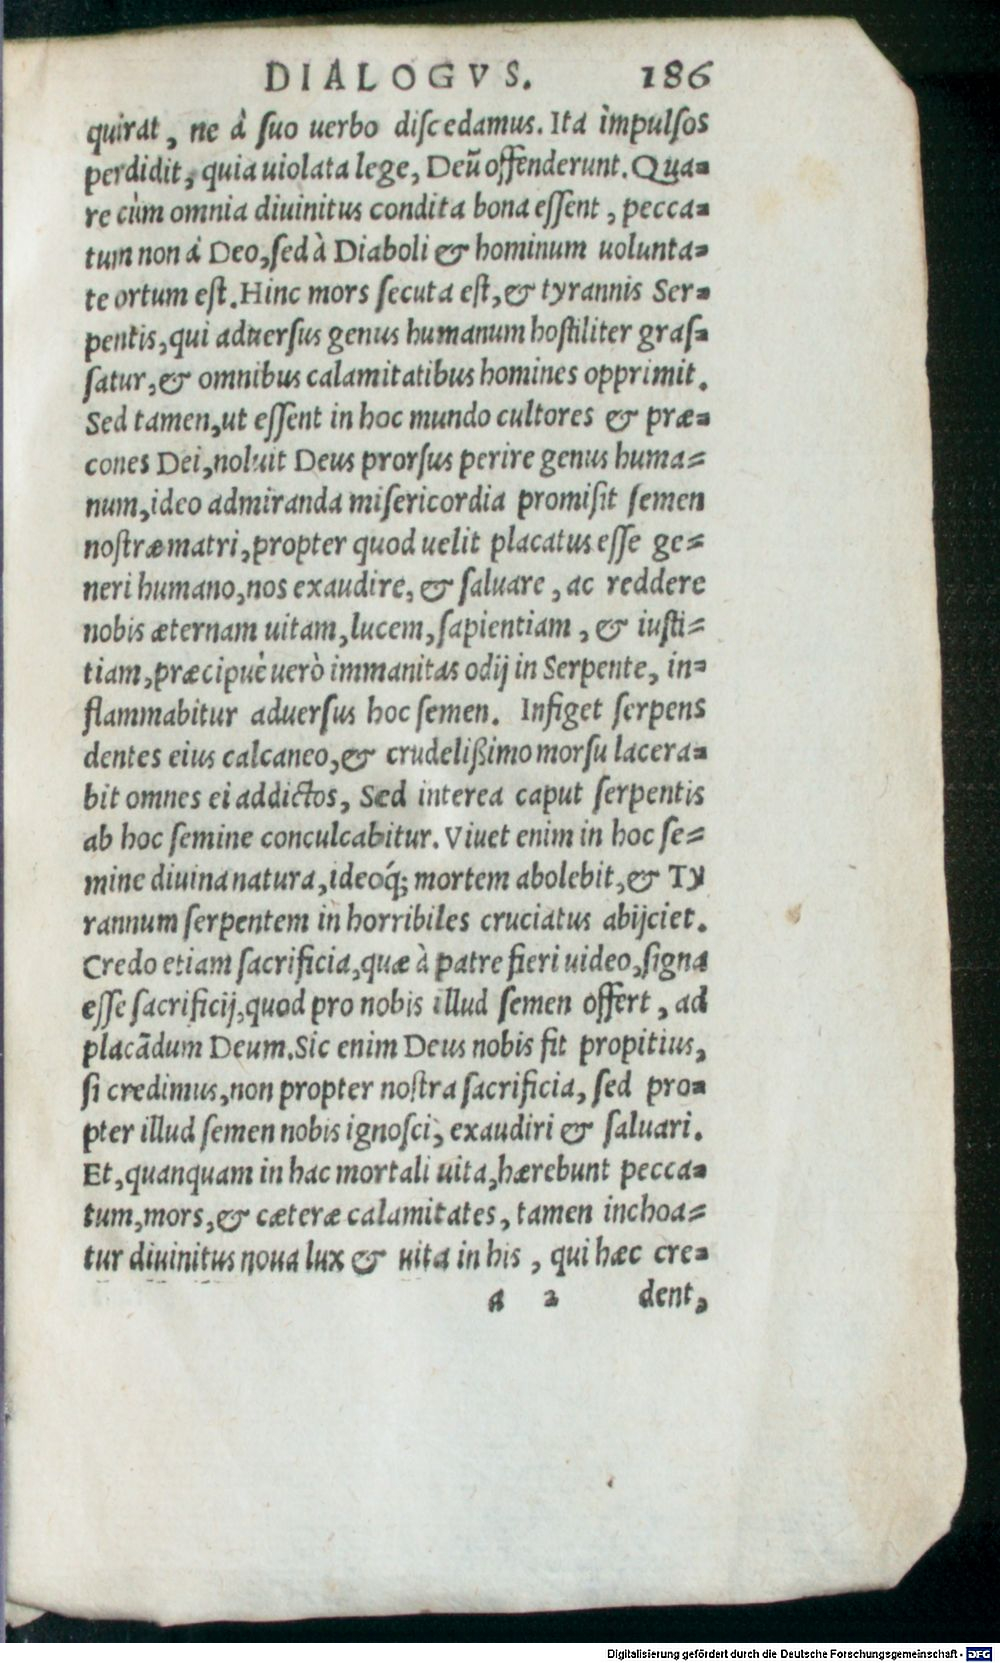 DIALOGVS. 186
quirat, ne à suo uerbo discedamus. Ita impulsos
perdidit, quia uiolata lege, Deũ offenderunt. Qua=
re cùm omnia diuinitus condita bona essent, pecca=
tum non à Deo, sed à Diaboli & hominum uolunta=
te ortum est. Hinc mors secuta est, & tyrannis Ser=
pentis, qui aduersus genus humanum hostiliter gras=
satur, & omnibus calamitatibus homines opprimit.
Sed tamen, ut essent in hoc mundo cultores & præ=
cones Dei, noluit Deus prorsus perire genus huma=
num, ideo admiranda misericordia promisit semen
nostræ matri, propter quod uelit placatus esse ge=
neri humano, nos exaudire, & saluare, ac reddere
nobis æternam uitam, lucem, sapientiam, & iusti=
tiam, præcipuè uerò immanitas odij in Serpente, in=
flammabitur aduersus hoc semen. Infiget serpens
dentes eius calcaneo, & crudelißimo morsu lacera=
bit omnes ei addictos, Sed interea caput serpentis
ab hoc semine conculcabitur. Viuet enim in hoc se=
mine diuina natura, ideoq́; mortem abolebit, & Ty
rannum serpentem in horribiles cruciatus abijciet.
Credo etiam sacrificia, quæ à patre fieri uideo, signa
esse sacrificij, quod pro nobis illud semen offert, ad
placãdum Deum. Sic enim Deus nobis fit propitius,
si credimus, non propter nostra sacrificia, sed pro=
pter illud semen nobis ignosci, exaudiri & saluari.
Et, quanquam in hac mortali uita, hærebunt pecca=
tum, mors, & cæteræ calamitates, tamen inchoa=
tur diuinitus noua lux & uita in his, qui hæc cre=
a 2 dent,
Digitalisierung gefördert durch die Deutsche Forschungsgemeinschaft - DFG